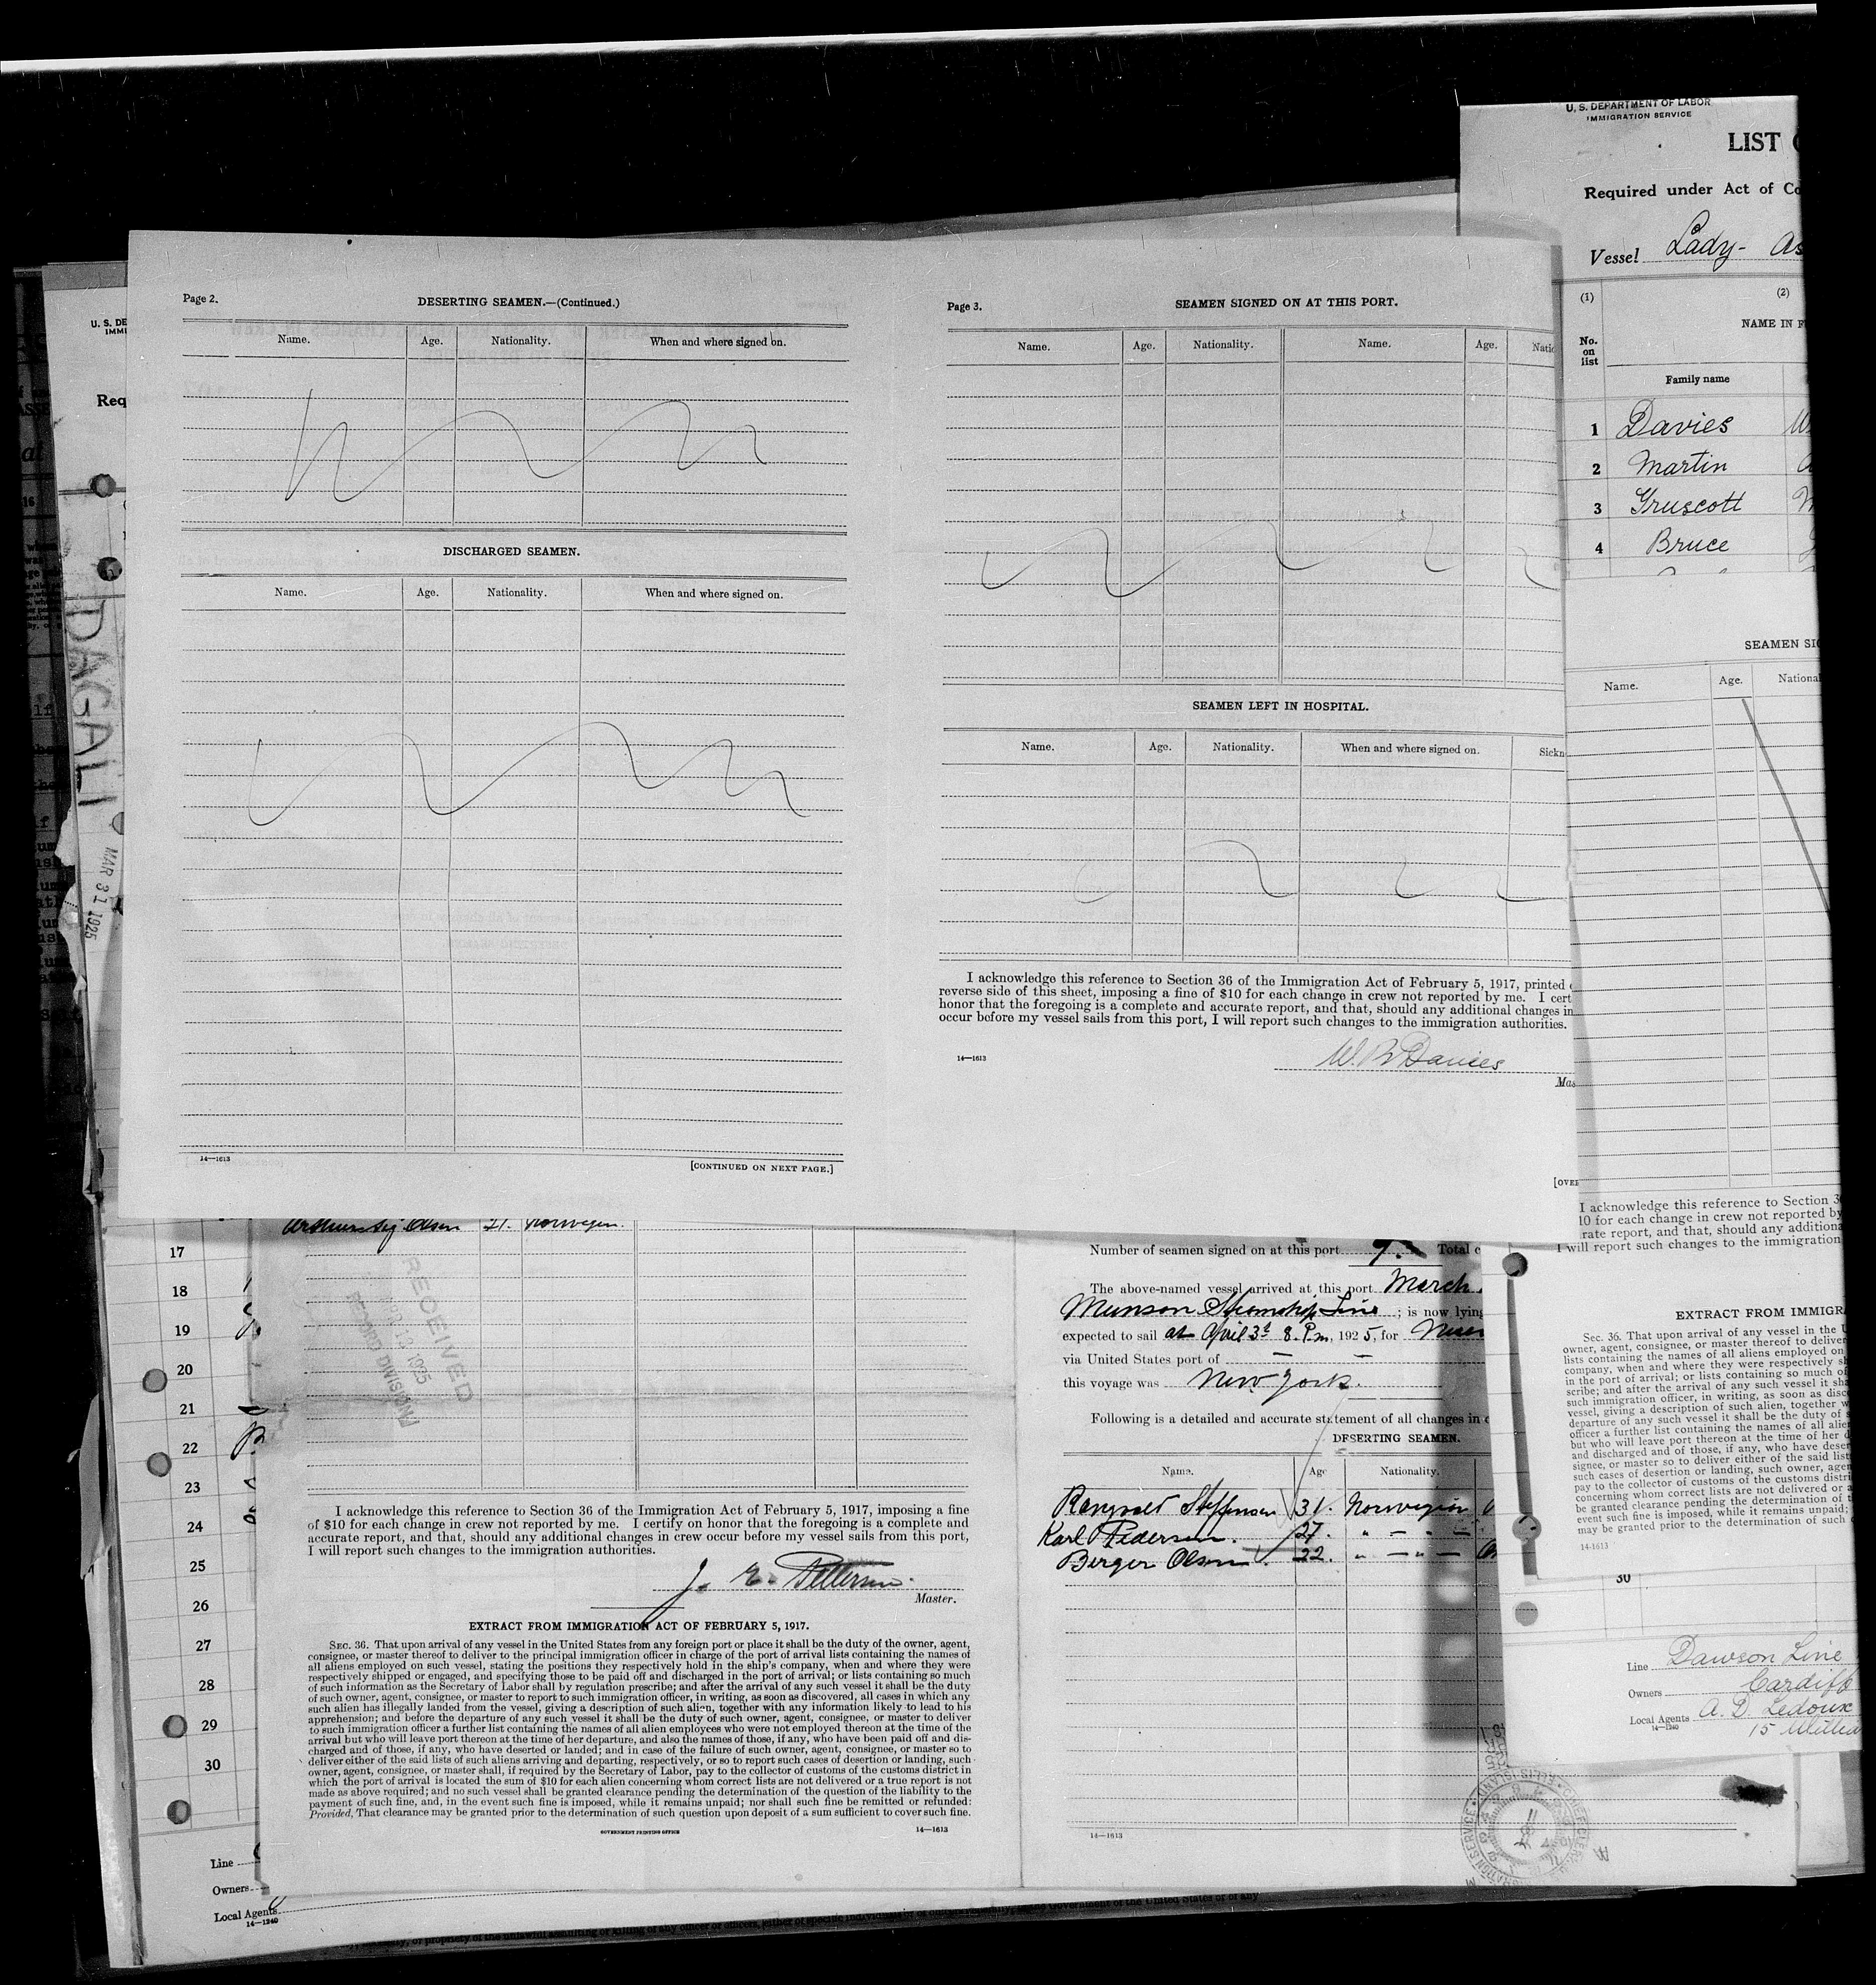 U. S. DEPARTMENT OF LABOR
IMMIGRATION SERVICE
LIST
Required under Act of Co
Vessel Lady- As
(1) (2)
NAME IN F
No. on list
Family name
1 Davies W
2 Martin
3 Gruscott
4 Bruce
Page 2.
DESERTING SEAMEN.—(Continued.)
Name. Age. Nationality. When and where signed on.
DISCHARGED SEAMEN.
Name. Age. Nationality. When and where signed on.
14—1613
[CONTINUED ON NEXT PAGE.]
Page 3.
SEAMEN SIGNED ON AT THIS PORT.
Name. Age. Nationality. Name. Age. Natio
SEAMEN LEFT IN HOSPITAL.
Name. Age. Nationality. When and where signed on. Sickn
I acknowledge this reference to Section 36 of the Immigration Act of February 5, 1917, printed
reverse side of this sheet, imposing a fine of $10 for each change in crew not reported by me. I cert
honor that the foregoing is a complete and accurate report, and that, should any additional changes in
occur before my vessel sails from this port, I will report such changes to the immigration authorities.
14—1613
W. R Davies
Mas
[OVER
U. S. DE
IMMI
Req
DAGALI
MAR 31 1925
SEAMEN SIG
Name. Age. National
I acknowledge this reference to Section 3
10 for each change in crew not reported by
rate report, and that, should any additiona
I will report such changes to the immigration
EXTRACT FROM IMMIGRA
Sec. 36. That upon arrival of any vessel in the U
owner, agent, consignee, or master thereof to deliver
lists containing the names of all aliens employed on
company, when and where they were respectively sh
in the port of arrival; or lists containing so much of
scribe; and after the arrival of any such vessel it sha
such immigration officer, in writing, as soon as disco
vessel, giving a description of such alien, together w
departure of any such vessel it shall be the duty of s
officer a further list containing the names of all alien
but who will leave port thereon at the time of her d
and discharged and of those, if any, who have deser
signee, or master so to deliver either of the said list
such cases of desertion or landing, such owner, agen
pay to the collector of customs of the customs distri
concerning whom correct lists are not delivered or a
be granted clearance pending the determination of t
event such fine is imposed, while it remains unpaid;
may be granted prior to the determination of such
14-1613
30
Line Dawson Line
Owners Cardiff
Local Agents A. D. Ledoux
14—1240
15
Olsen 21. Norwegen.
17
18
19
20
21
22
23
24
25
26
27
28
29
30
Line
Owners
Local Agents
14—1240
RECEIVED
1925
RECORD DIVISION
I acknowledge this reference to Section 36 of the Immigration Act of February 5, 1917, imposing a fine
of $10 for each change in crew not reported by me. I certify on honor that the foregoing is a complete and
accurate report, and that, should any additional changes in crew occur before my vessel sails from this port,
I will report such changes to the immigration authorities.
Master.
EXTRACT FROM IMMIGRATION ACT OF FEBRUARY 5, 1917.
SEC. 36. That upon arrival of any vessel in the United States from any foreign port or place it shall be the duty of the owner, agent,
consignee, or master thereof to deliver to the principal immigration officer in charge of the port of arrival lists containing the names of
all aliens employed on such vessel, stating the positions they respectively hold in the ship's company, when and where they were
respectively shipped or engaged, and specifying those to be paid off and discharged in the port of arrival; or lists containing so much
of such information as the Secretary of Labor shall by regulation prescribe; and after the arrival of any such vessel it shall be the duty
of such owner, agent, consignee, or master to report to such immigration officer, in writing, as soon as discovered, all cases in which any
such alien has illegally landed from the vessel, giving a description of such alien, together with any information likely to lead to his
apprehension; and before the departure of any such vessel it shall be the duty of such owner, agent, consignee, or master to deliver
to such immigration officer a further list containing the names of all alien employees who were not employed thereon at the time of the
arrival but who will leave port thereon at the time of her departure, and also the names of those, if any, who have been paid off and dis-
charged and of those, if any, who have deserted or landed; and in case of the failure of such owner, agent, consignee, or master so to
deliver either of the said lists of such aliens arriving and departing, respectively, or so to report such cases of desertion or landing, such
owner, agent, consignee, or master shall, if required by the Secretary of Labor, pay to the collector of customs of the customs district in
which the port of arrival is located the sum of $10 for each alien concerning whom correct lists are not delivered or a true report is not
made as above required; and no such vessel shall be granted clearance pending the determination of the question of the liability to the
payment of such fine, and, in the event such fine is imposed, while it remains unpaid; nor shall such fine be remitted or refunded:
Provided, That clearance may be granted prior to the determination of such question upon deposit of a sum sufficient to cover such fine.
GOVERNMENT PRINTING OFFICE 14—1613
Number of seamen signed on at this port 7. Total c
The above-named vessel arrived at this port March
Munson Steamship Line ; is now lying
expected to sail at April 3d 8. P.m, 1925, for
via United States port of — —
this voyage was New York.
Following is a detailed and accurate statement of all changes in c
DESERTING SEAMEN.
Name. Age Nationality.
Rangvald Steffensen 31. Norwegian
Karl Pedersen. 27. " — " —
Berger Olsen. 22. " — " —
14—1613